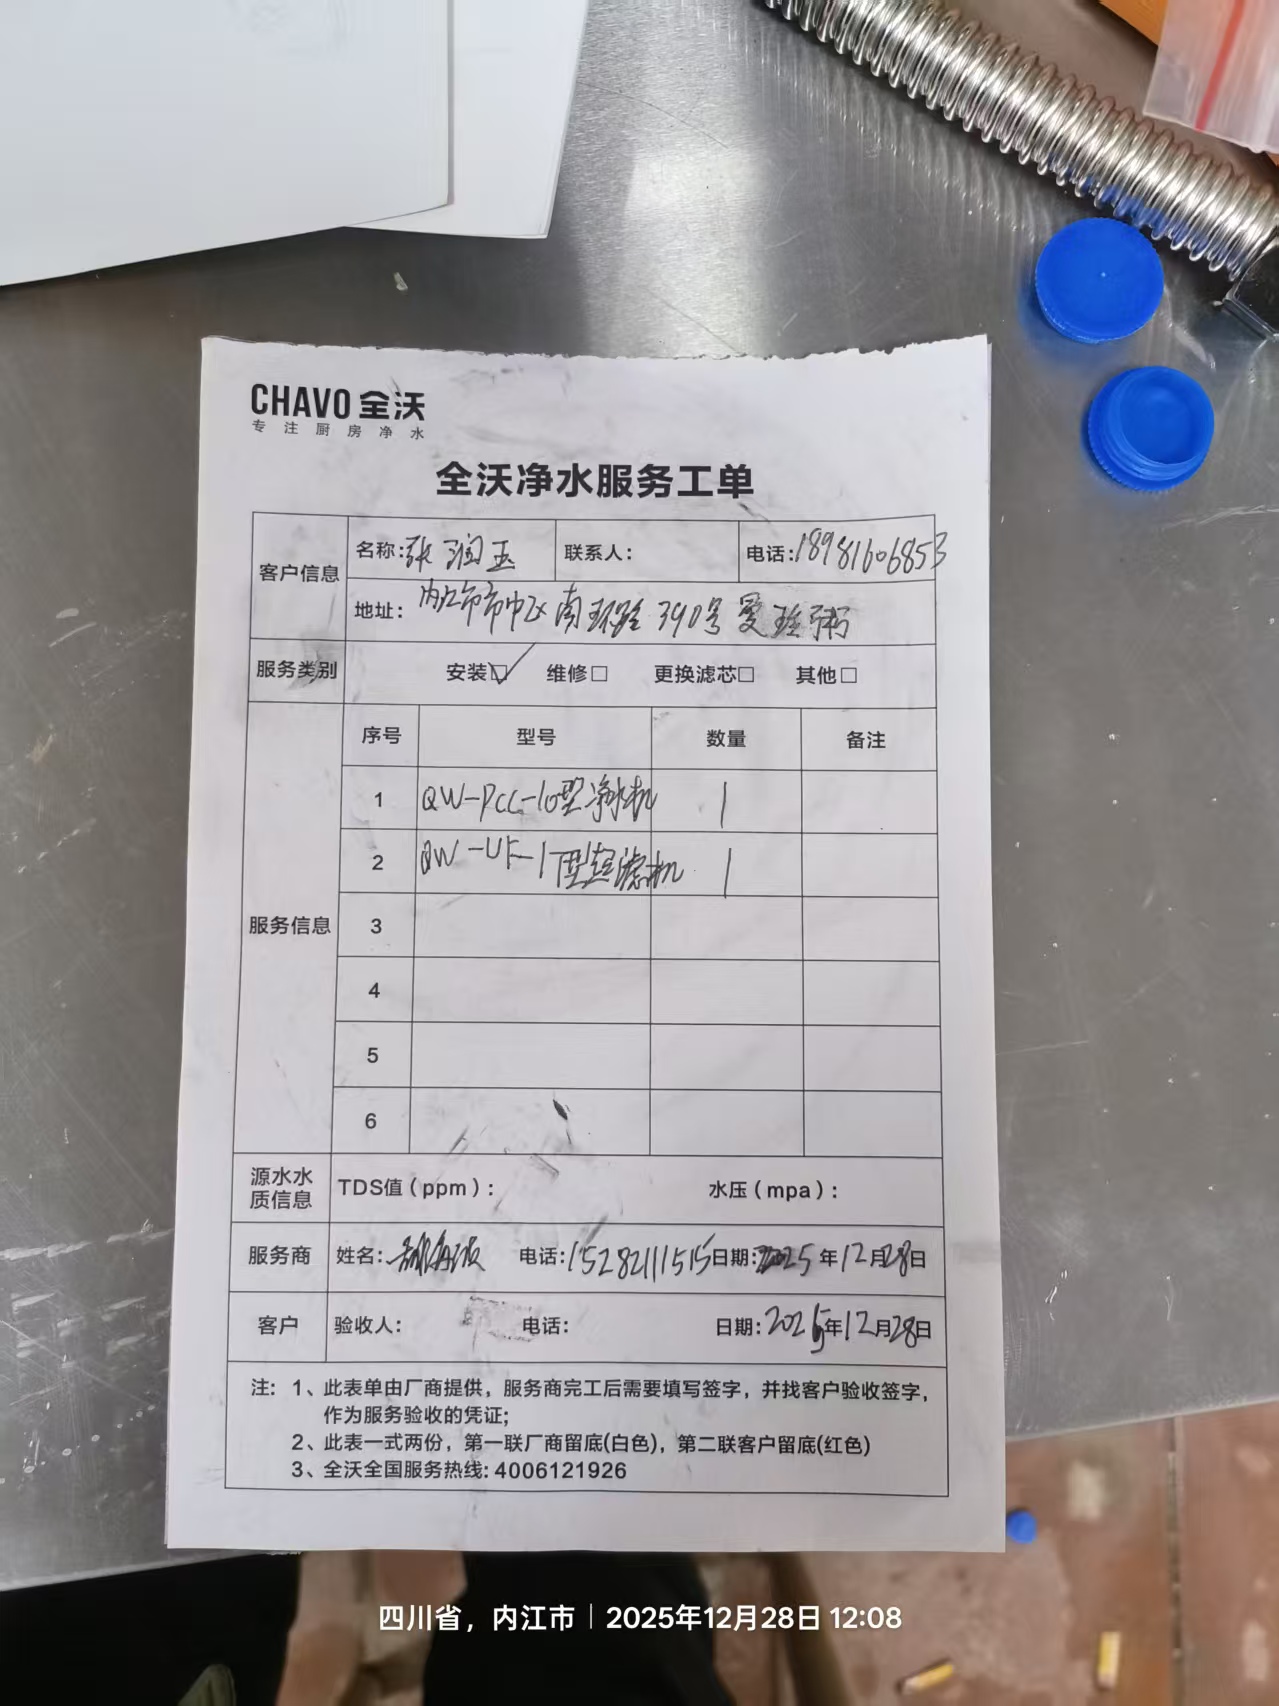 CHAVO 全沃
专注厨房净水
全沃净水服务工单
客户信息 名称:张润玉 联系人: 电话:18981606853
地址: 内江市市中区南环路390号曼玲粥
服务类别 安装☑ 维修□ 更换滤芯□ 其他□
服务信息 序号 型号 数量 备注
1 QW-PCC-10型净水机 1
2 QW-UF-1T型超滤机 1
3
4
5
6
源水水质信息 TDS值(ppm): 水压(mpa):
服务商 姓名: 电话:15282111515 日期:2025年12月28日
客户 验收人: 电话: 日期:2025年12月28日
注: 1、此表单由厂商提供,服务商完工后需要填写签字,并找客户验收签字,
作为服务验收的凭证;
2、此表一式两份,第一联厂商留底(白色),第二联客户留底(红色)
3、全沃全国服务热线:4006121926
四川省,内江市|2025年12月28日 12:08